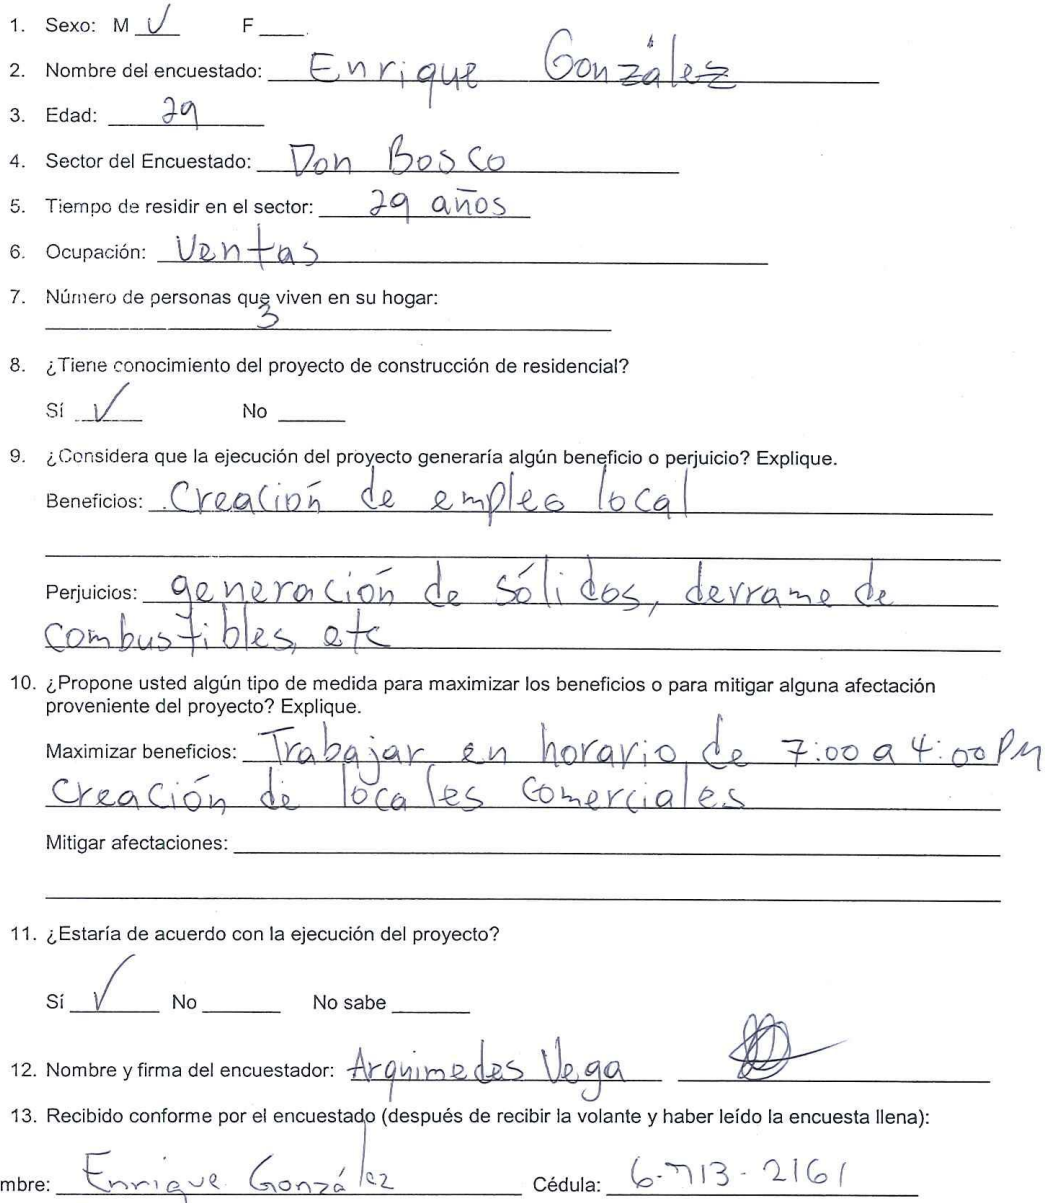 1. Sexo: M ✓ F ____.
2. Nombre del encuestado: Enrique González
3. Edad: 29
4. Sector del Encuestado: Don Bosco
5. Tiempo de residir en el sector: 29 años
6. Ocupación: Ventas
7. Número de personas que viven en su hogar:
3
8. ¿Tiene conocimiento del proyecto de construcción de residencial?
Sí ✓ No ____
9. ¿Considera que la ejecución del proyecto generaría algún beneficio o perjuicio? Explique.
Beneficios: Creación de empleo local
Perjuicios: generación de sólidos, derrame de
combustibles, etc
10. ¿Propone usted algún tipo de medida para maximizar los beneficios o para mitigar alguna afectación
proveniente del proyecto? Explique.
Maximizar beneficios: Trabajar en horario de 7:00 a 4:00 PM
Creación de locales comerciales
Mitigar afectaciones:
11. ¿Estaría de acuerdo con la ejecución del proyecto?
Sí ✓ No ____ No sabe ____
12. Nombre y firma del encuestador: Arquimedes Vega
13. Recibido conforme por el encuestado (después de recibir la volante y haber leído la encuesta llena):
mbre: Enrique González Cédula: 6-713-2161